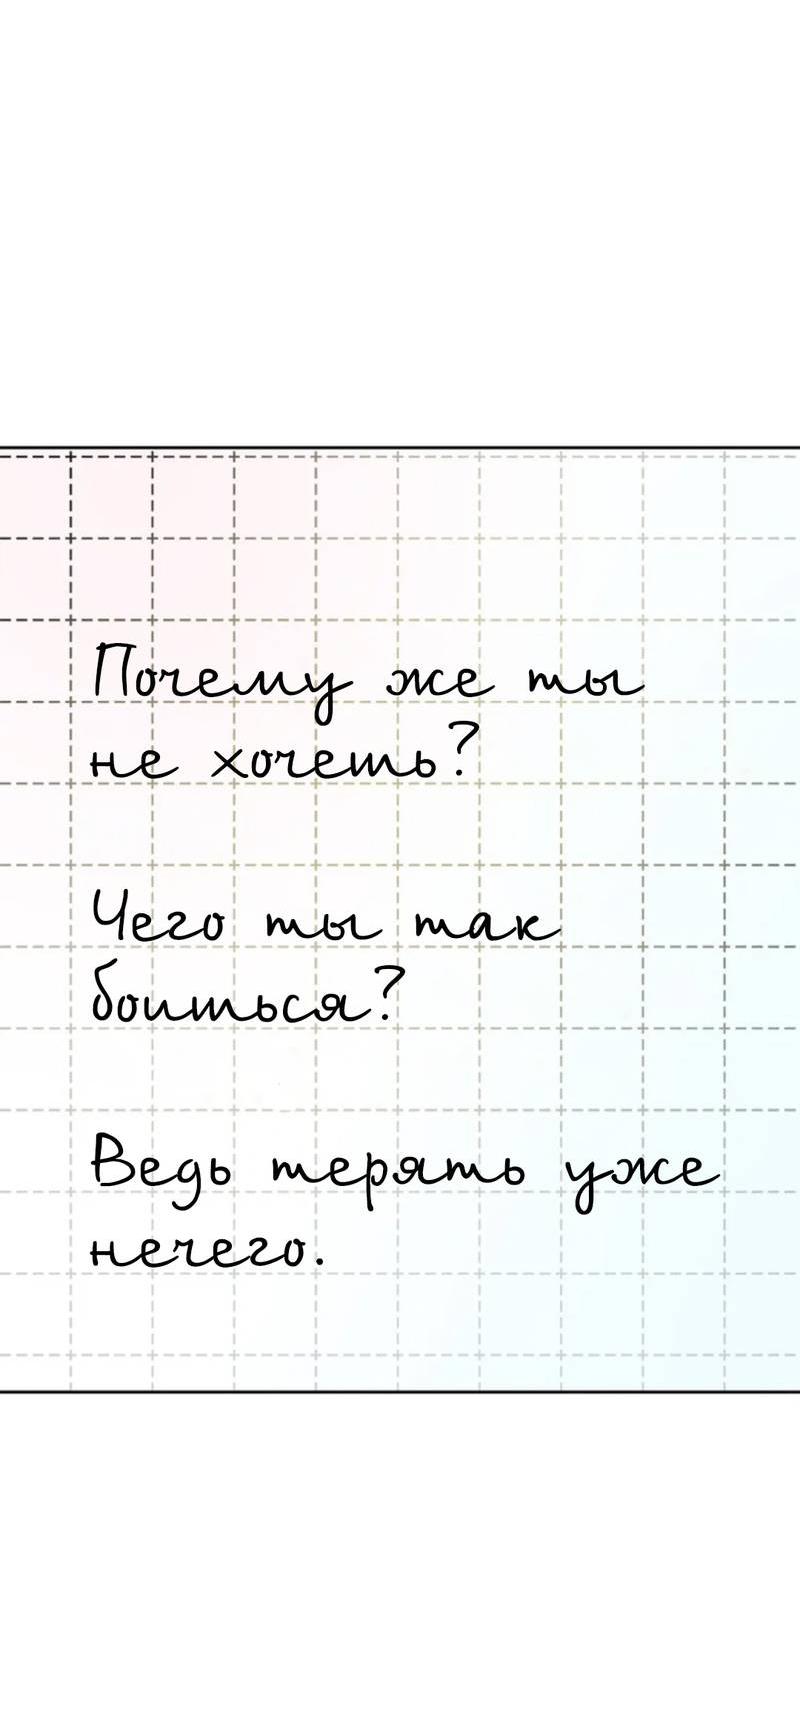 Почему же ты
не хочеть?
Чего ты так
боиться?
Ведь терять уже
нечего.